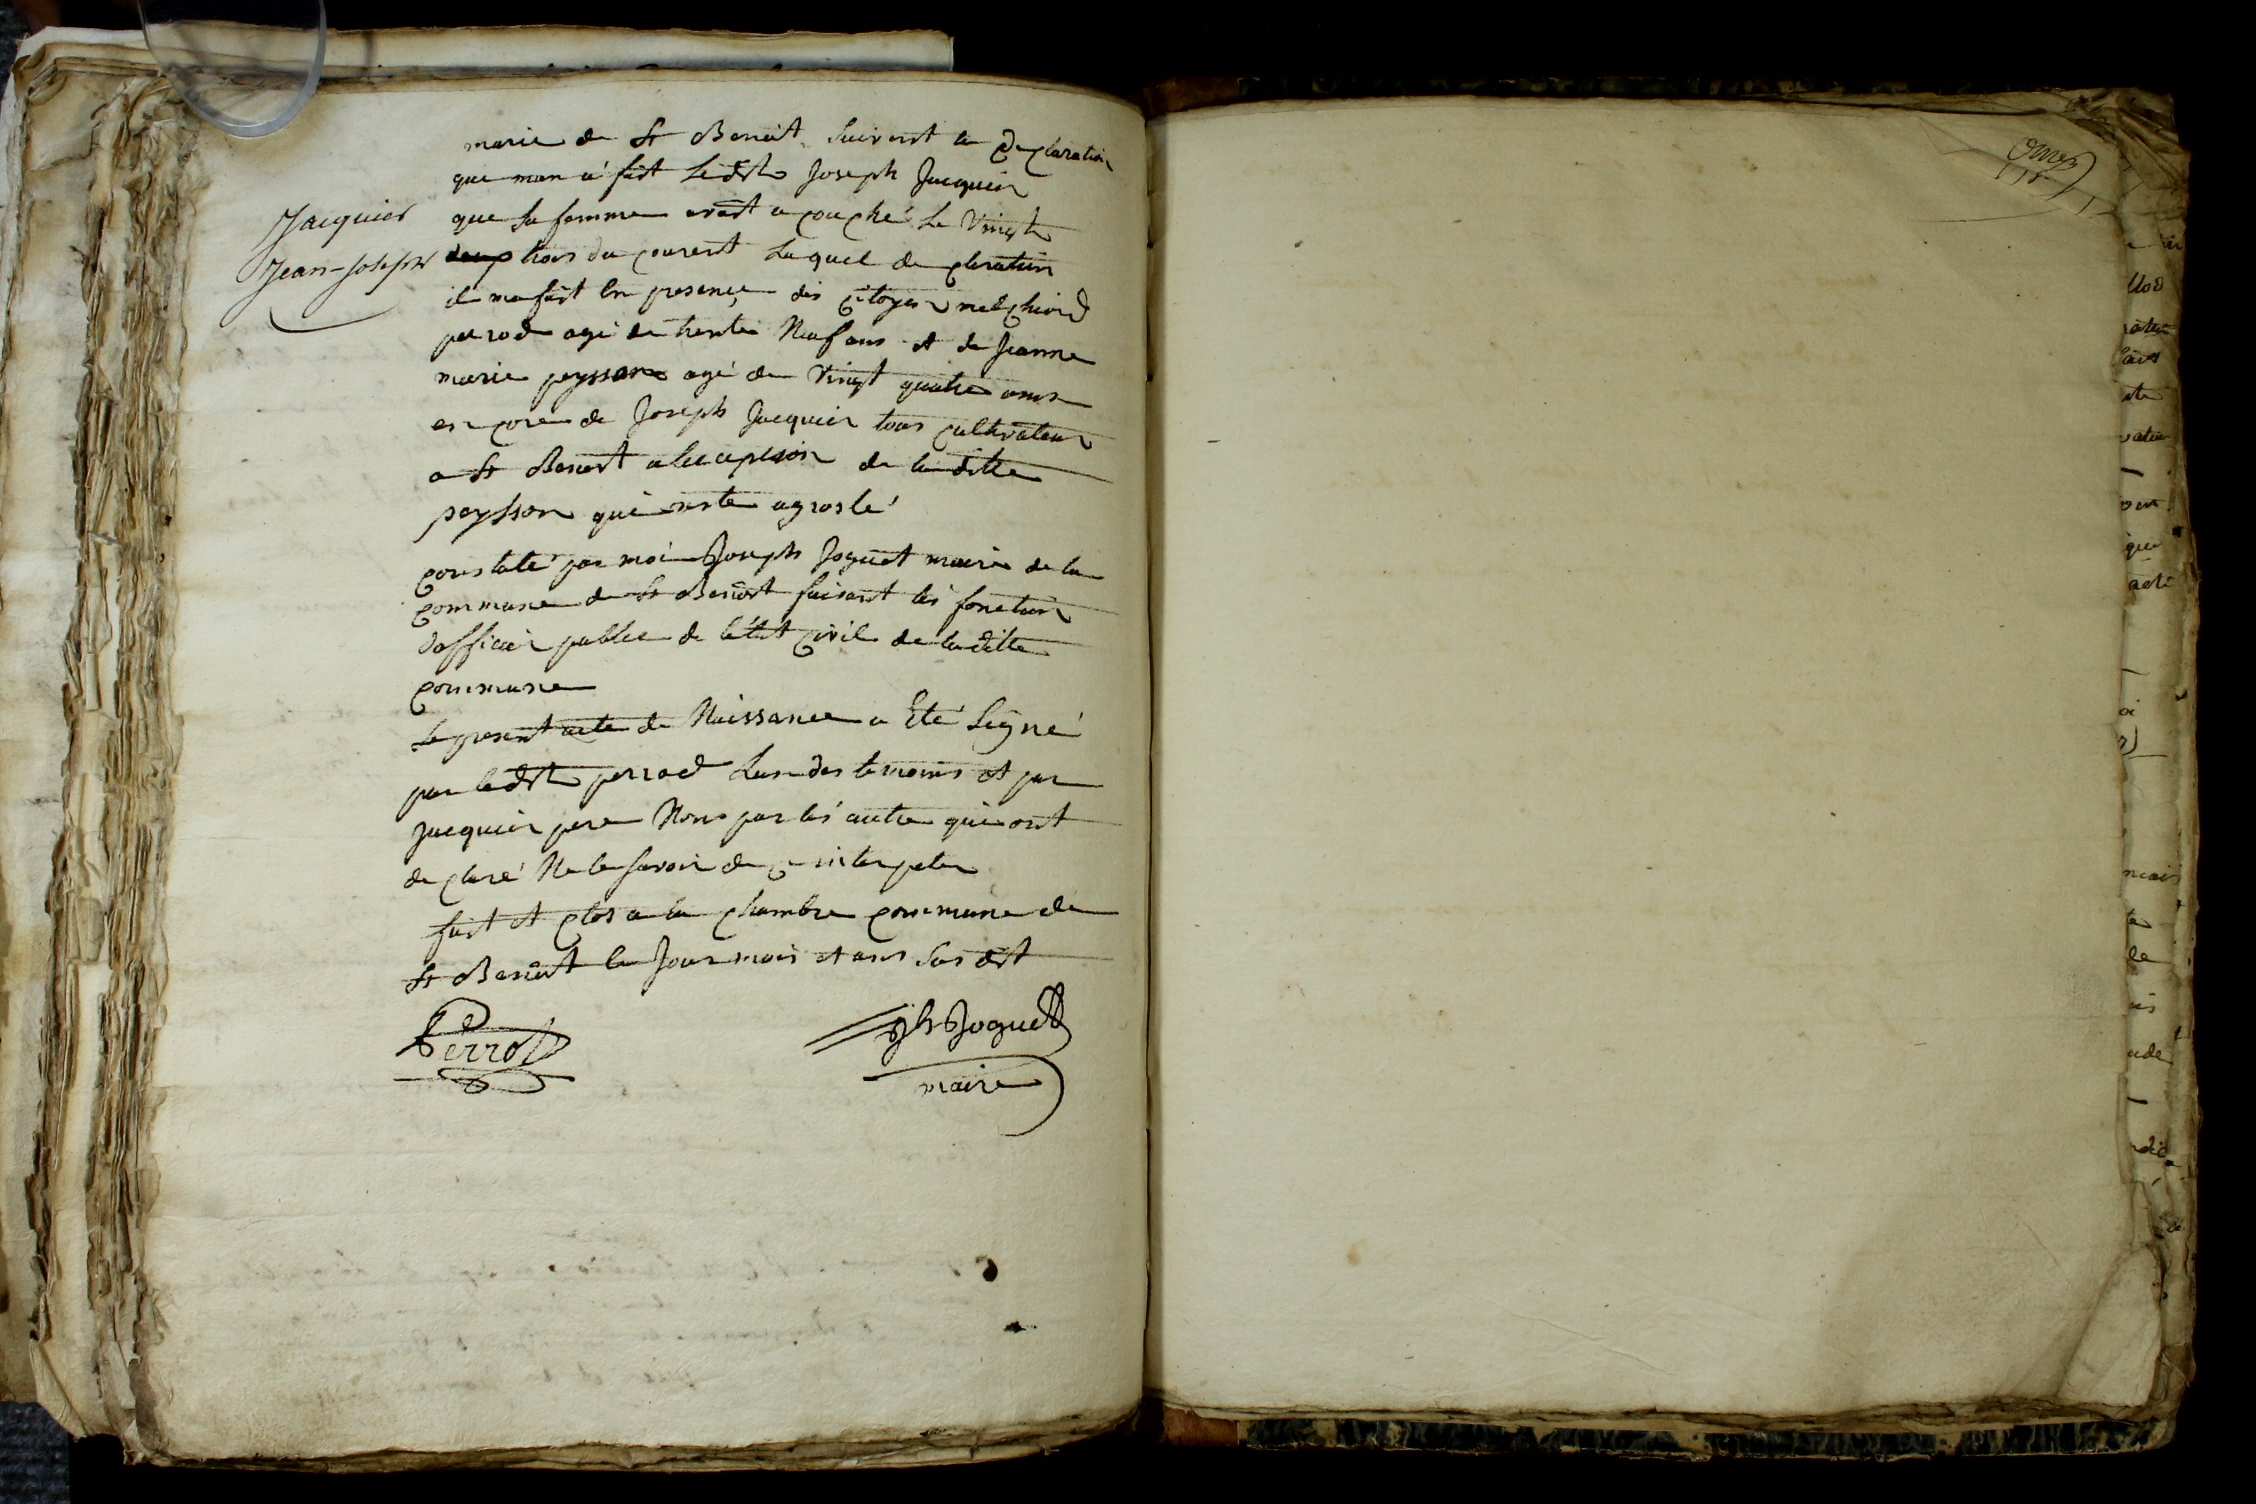 marie de St Benoit suivent la declaration
que man a fait Ledit Joseph Jacquier
Jacquier
que sa femme avait acouché Le Vingt
Jean-Joseph
trois du courent Laquel declaration
il ma fait En presence des citoyen melchiord
perrod agé de trente Neuf ans et de jeanne
marie peysson agé de Vingt quatre ans
encore de Joseph Jacquier tous cultivateur
a St Benoit a lecapsion de laditte
peysson qui reste a groslé
constaté par moi Joseph Joguet maire de la
commune de St Benoit faisant les fonction
dofficier public de létat civil de laditte
commune
Le present acte de Naissance a Eté Signé
par ledit perrod Lun des temoins et par
jacquier pere Nons par les autre qui ont
declaré Ne le savoir de ce interpeler
fait et clos a la chambre commune de
St Benoit le Jour mois et ans susdit
Perrod
Jh Joguet
maire